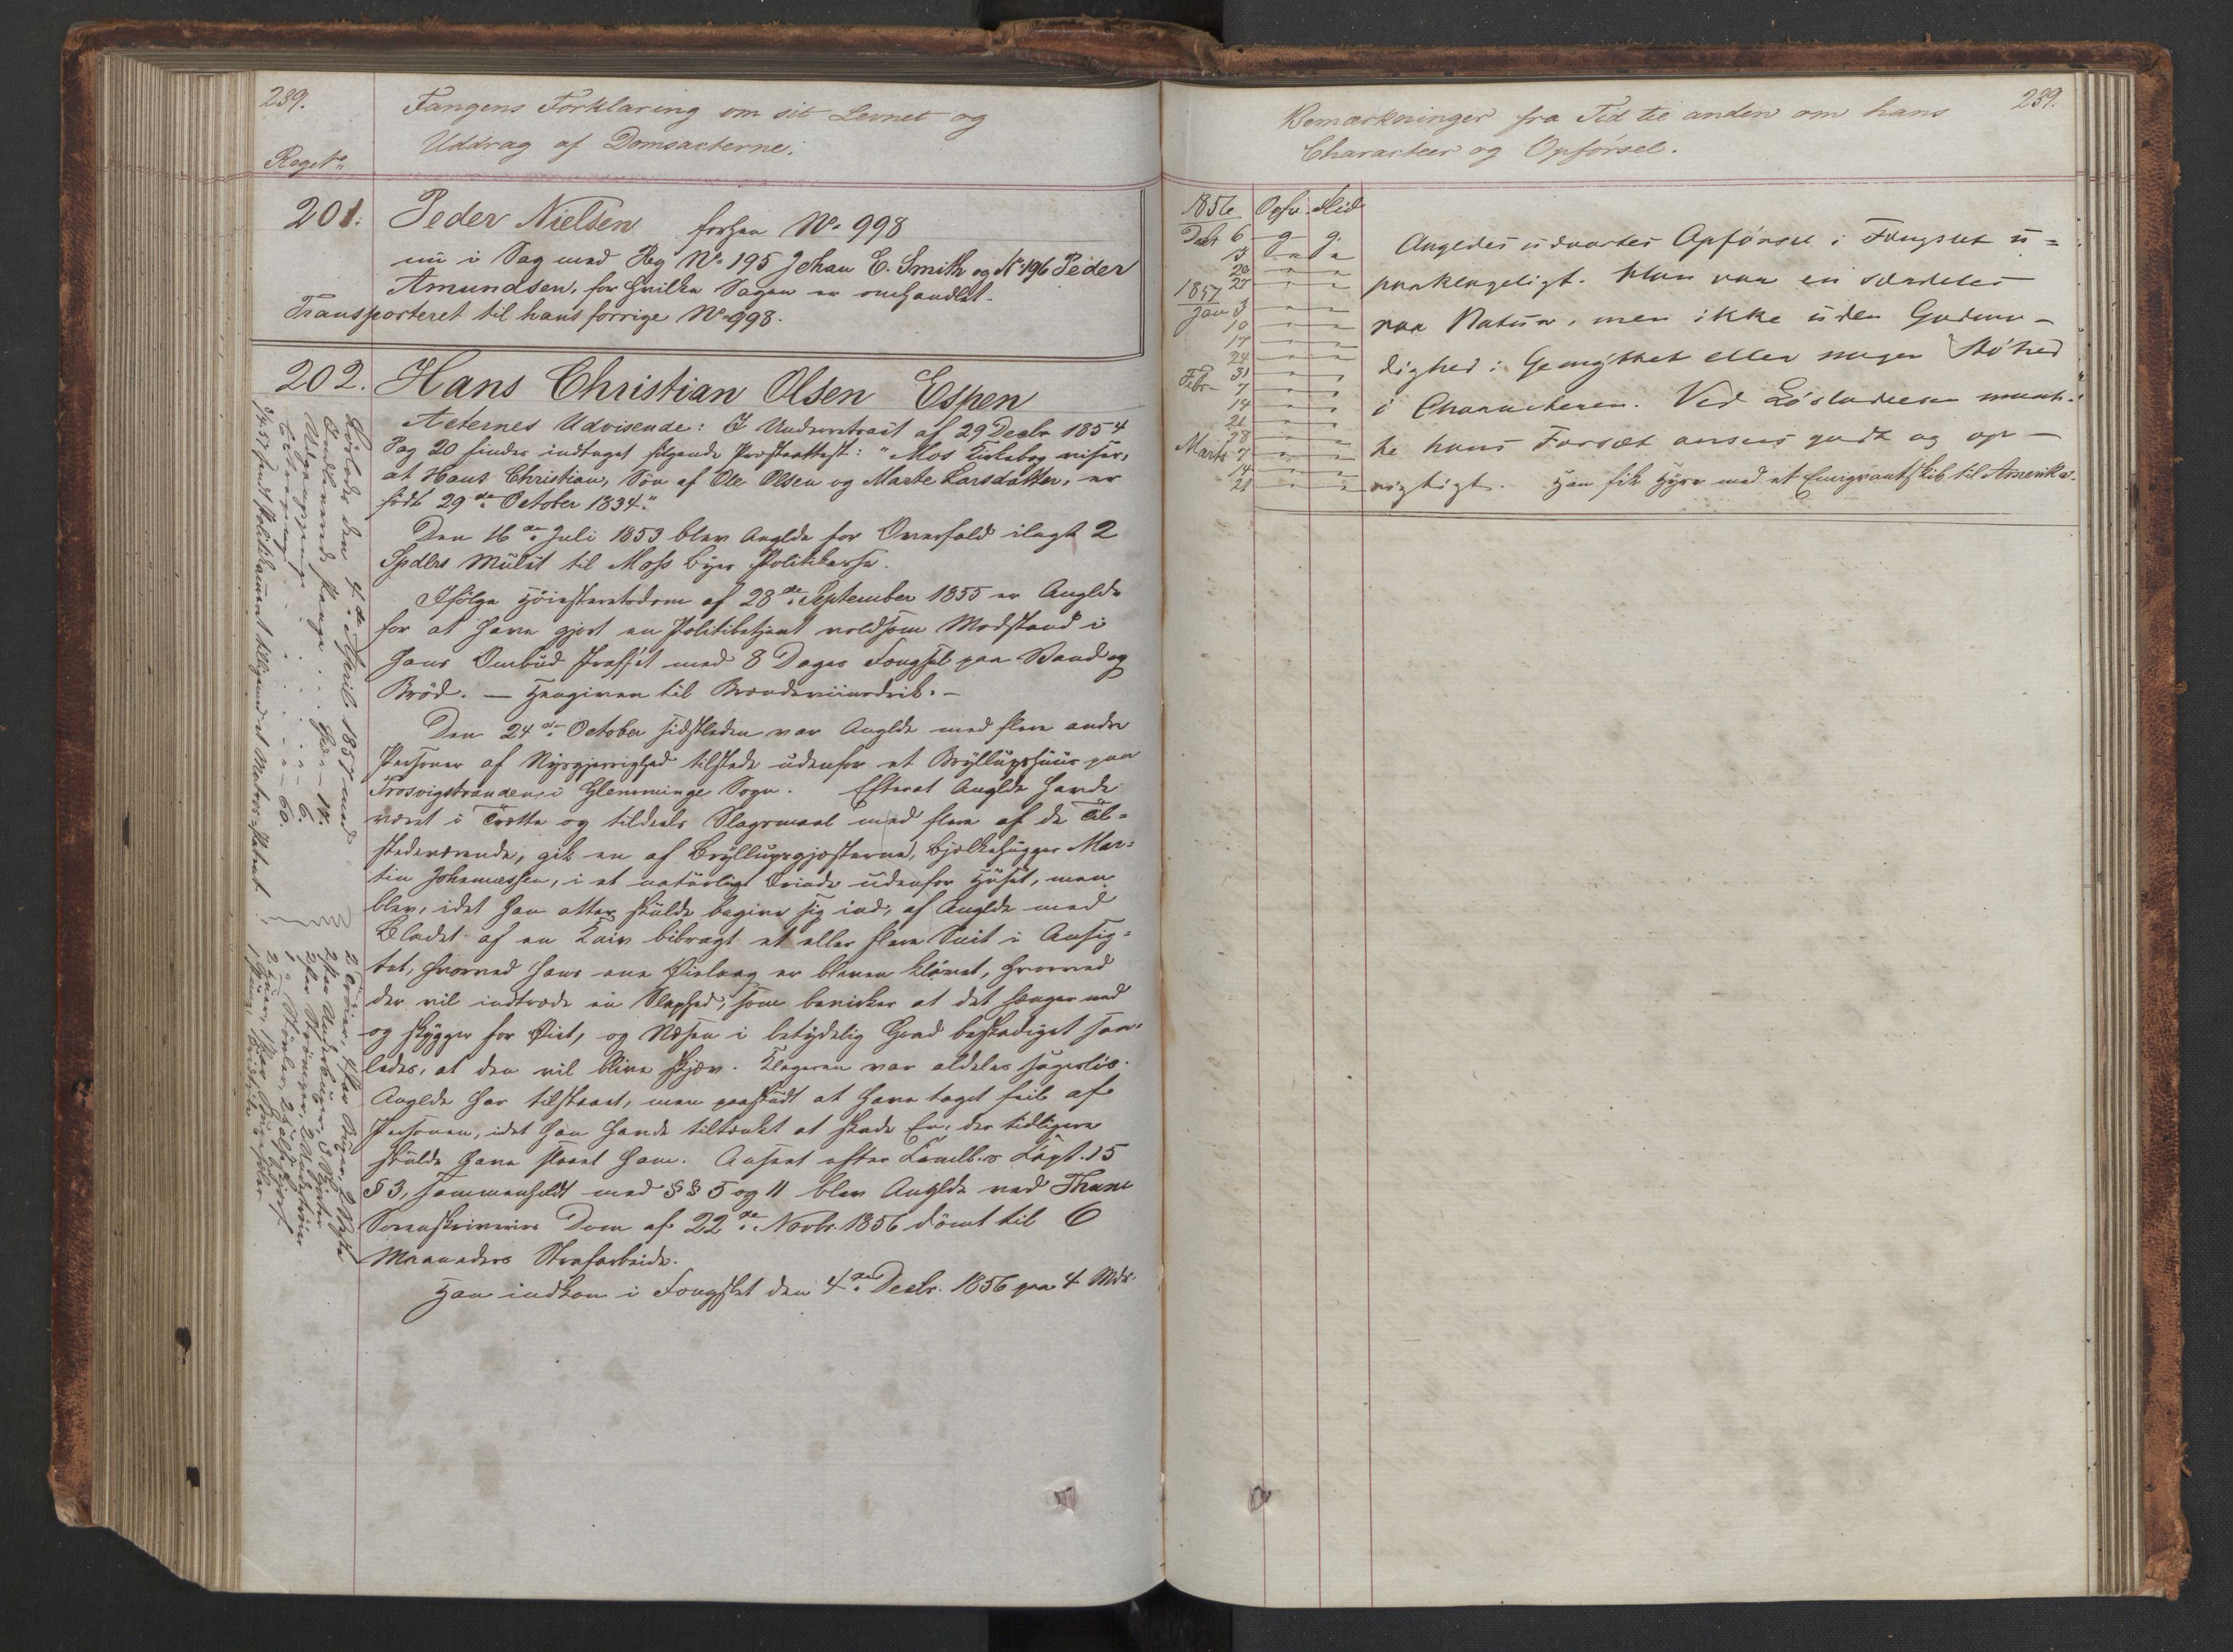 239.
Fangens Forklaring om sit Levnet og
Uddrag af Domsacterne.
Regst.
201. Peder Nielsen forhen No. 998
nu i Sag med Reg No. 195 Johan C. Smith og No. 196 Peder
Amundsen, for hvilke Sagen er omhandlet.
Transporteret til hans forrige No. 998.
202. Hans Christian Olsen Espen
Acternes Udvisende: I af 29 Decbr 1854
Pag 20 findes indtaget følgende Præsteattest: "Mos Kirkebog viser,
at Hans Christian, Søn af Ole Olsen og Marte Larsdatter, er
født 29de October 1834."
Den 16de Juli 1853 blev Anglde for Overfald ilagt 2
Spdlrs Mulct til Moss Byes Politikasse.
Ifølge Høiesteretsdom af 28de September 1855 er Anglde
for at have gjort en Politibetjent voldsom Modstand i
hans Ombud straffet med 8 Dages Fængsel paa Vand og
Brød. — Hengiven til Brændeviinsdrik. —
Den 24de October sidstleden var Anglde med flere andre
Personer af Nysgjerrighed tilstede udenfor et Bryllupshuus paa
Trosvigstranden i Glemminge Sogn. Efterat Anglde havde
været i Trætte og tildeels Slagsmaal med flere af de Til=
stedeværende, gik en af Bryllupsgjæsterne, Bjelkehugger Mar=
tin Johannessen, i et naturligt Ærinde udenfor Huset, men
blev, idet han atter skulde begive sig ind, af Anglde med
Bladet af en Kniv bibragt et eller flere Snit i Ansig=
tet, hvorved hans ene Øielaag er bleven kløvet, hvorved
der vil indtræde en Slaphed, som bevirker at det hænger ned
og skygger for Øiet, og Næsen i betydelig Grad beskadiget saa=
ledes, at den vil blive skjæv. Klageren var aldeles sagesløs.
Anglde har tilstaaet, men paastaaet at have taget feil af
Personen, idet han havde tiltænkt at skade En, der tidligere
skulde have slaaet ham. Anseet efter Crimll.s Capt. 15
§ 3, sammenholdt med §§ 5 og 11 blev Anglde ved Thune
Sorenskriveries Dom af 22de Novbr. 1856 dømt til 6
Maaneders Strafarbeide.
Han indkom i Fængslet den 4de Decbr. 1856 paa 4 Mdr.
Løslades den 4de April 1857 med
Penge
2 Trøier, 2 Par Buxer, 2 Veste
2 Par Underbuxer, 3 Skjorter
2 Par Strømper, 2 Undertrøier
239.
Bemærkninger fra Tid til anden om hans
Characteer og Opførsel.
1856 Opfr. Flid
Decbr 6 g g.
13 " "
20 " "
27 " "
1857
Jan 3 " "
10 " "
17 " "
24 " "
31 " "
Febr 7 " "
14 " "
21 " "
28 " "
Marts 7 " "
14 " "
21 " "
Angldes udvortes Opførsel i Fængslet u=
paaklageligt. Han var en særdeles
raa Natur, men ikke uden Godmo-
dighed i Gemyttet eller nogen Støhed
i Characteren. Ved Løsladelsen maat-
te hans Forsæt ansees godt og op-
rigtigt. Han fik Hyre med et Emigrantskib til Amerika.